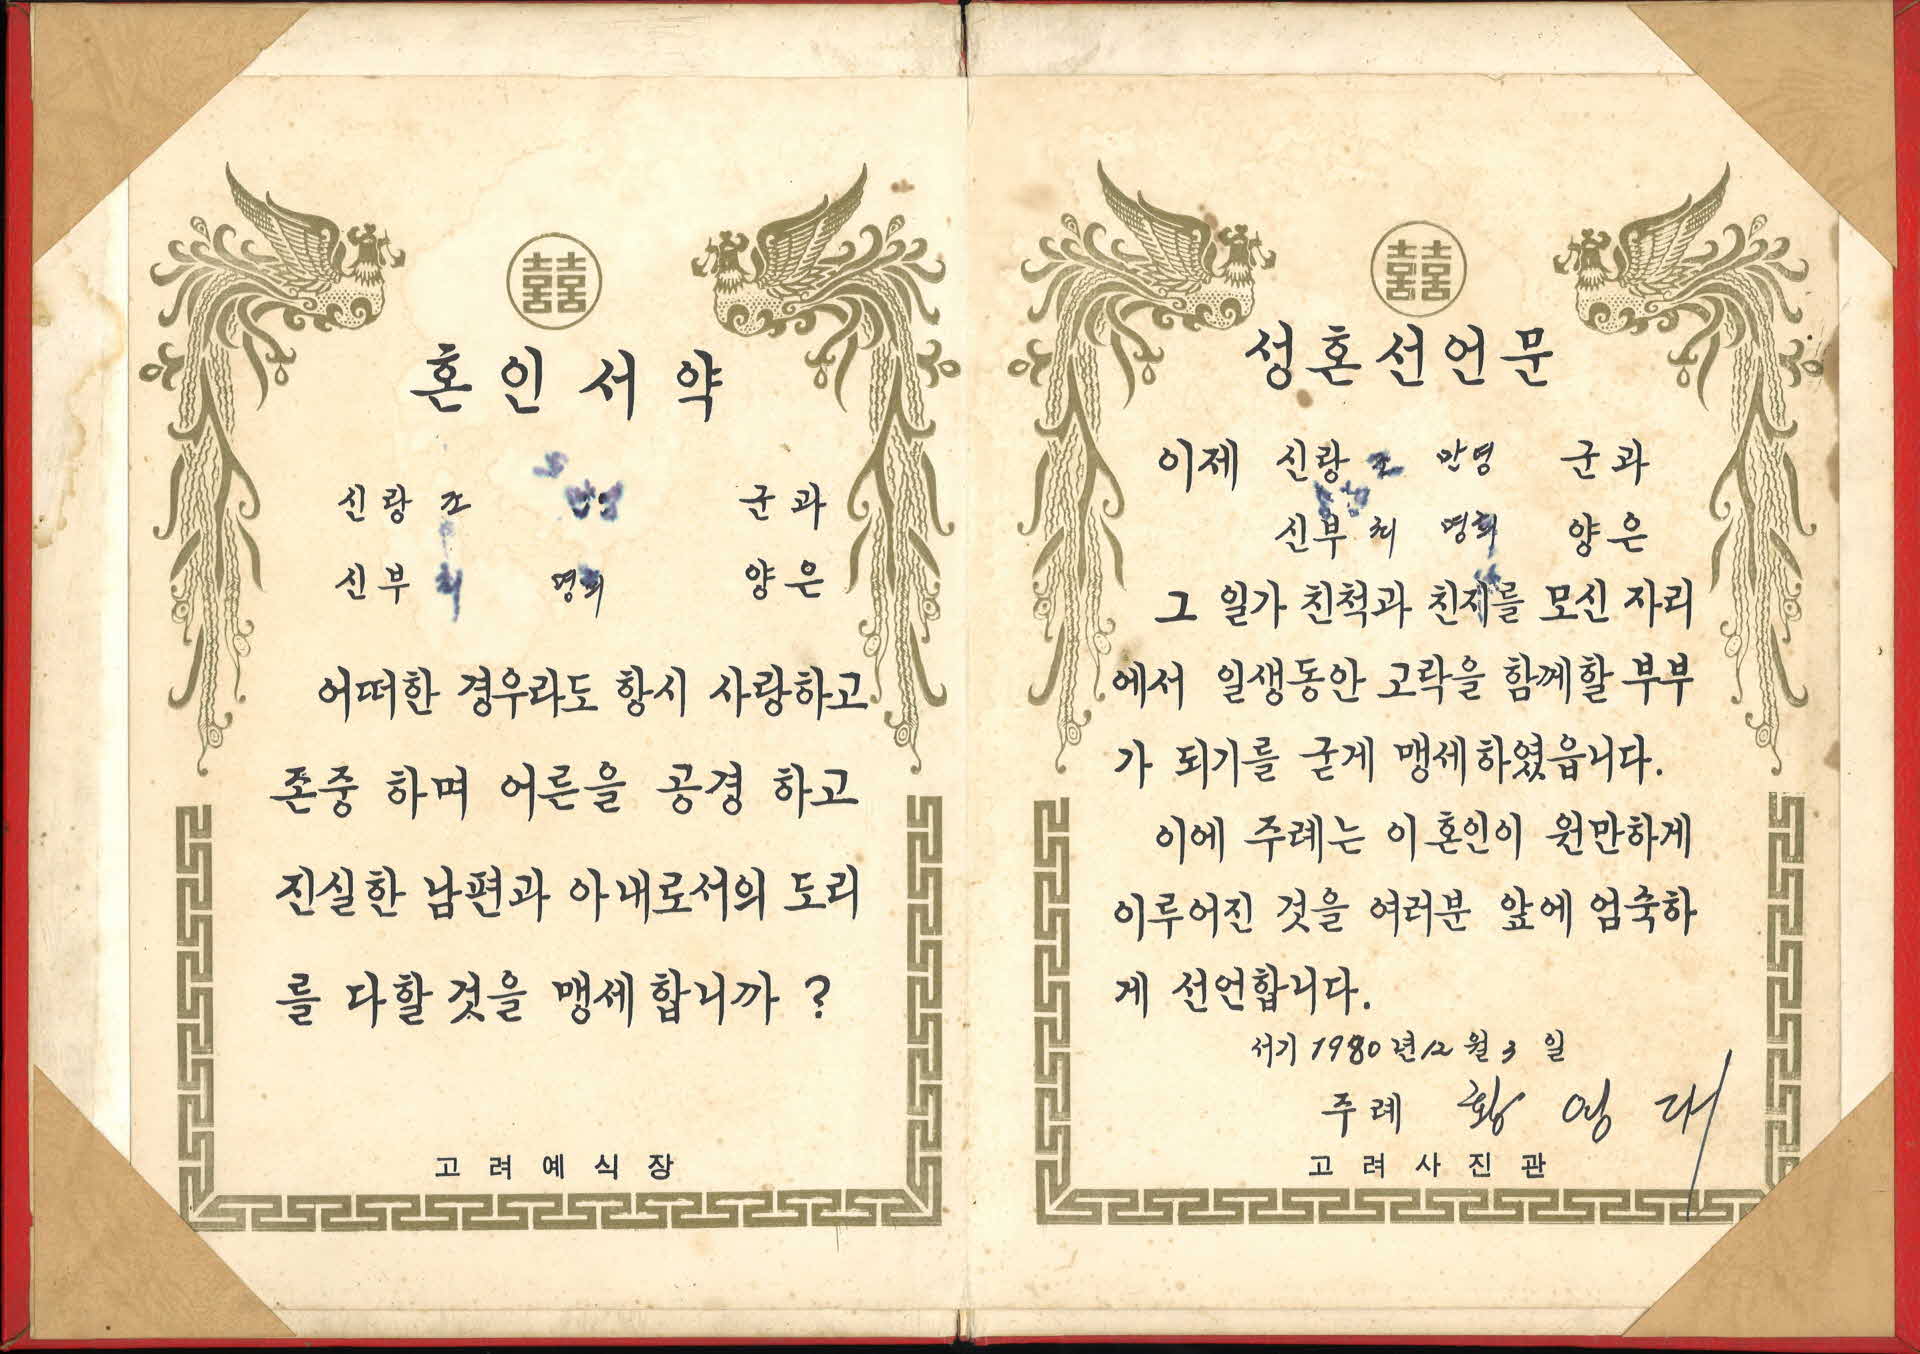 囍
혼인서약
신랑 조 만영 군과
신부 최 명희 양은
어떠한 경우라도 항시 사랑하고
존중 하며 어른을 공경 하고
진실한 남편과 아내로서의 도리
를 다할 것을 맹세 합니까 ?
고려예식장
囍
성혼선언문
이제 신랑 조 만영 군과
신부 최 명희 양은
그 일가 친척과 친지를 모신 자리
에서 일생동안 고락을 함께할 부부
가 되기를 굳게 맹세하였읍니다.
이에 주례는 이 혼인이 원만하게
이루어진 것을 여러분 앞에 엄숙하
게 선언합니다.
서기 1980년 12월 3일
주례 황영대
고려사진관